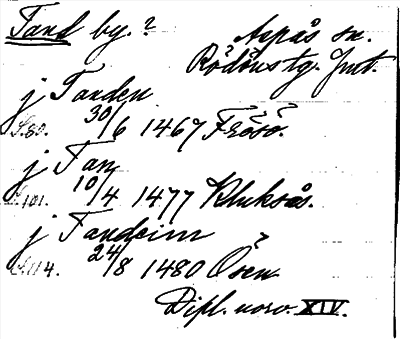 Tand by.? Aspås sn.
Rödöns tg. Jmt.
j Tanden
S.80. 30/6 1467 Frösö.
j Tan
S.101. 10/4 1477 Kluksås.
j Tandeim
S.114. 24/8 1480 Ösen
Dipl. norv. XIV.